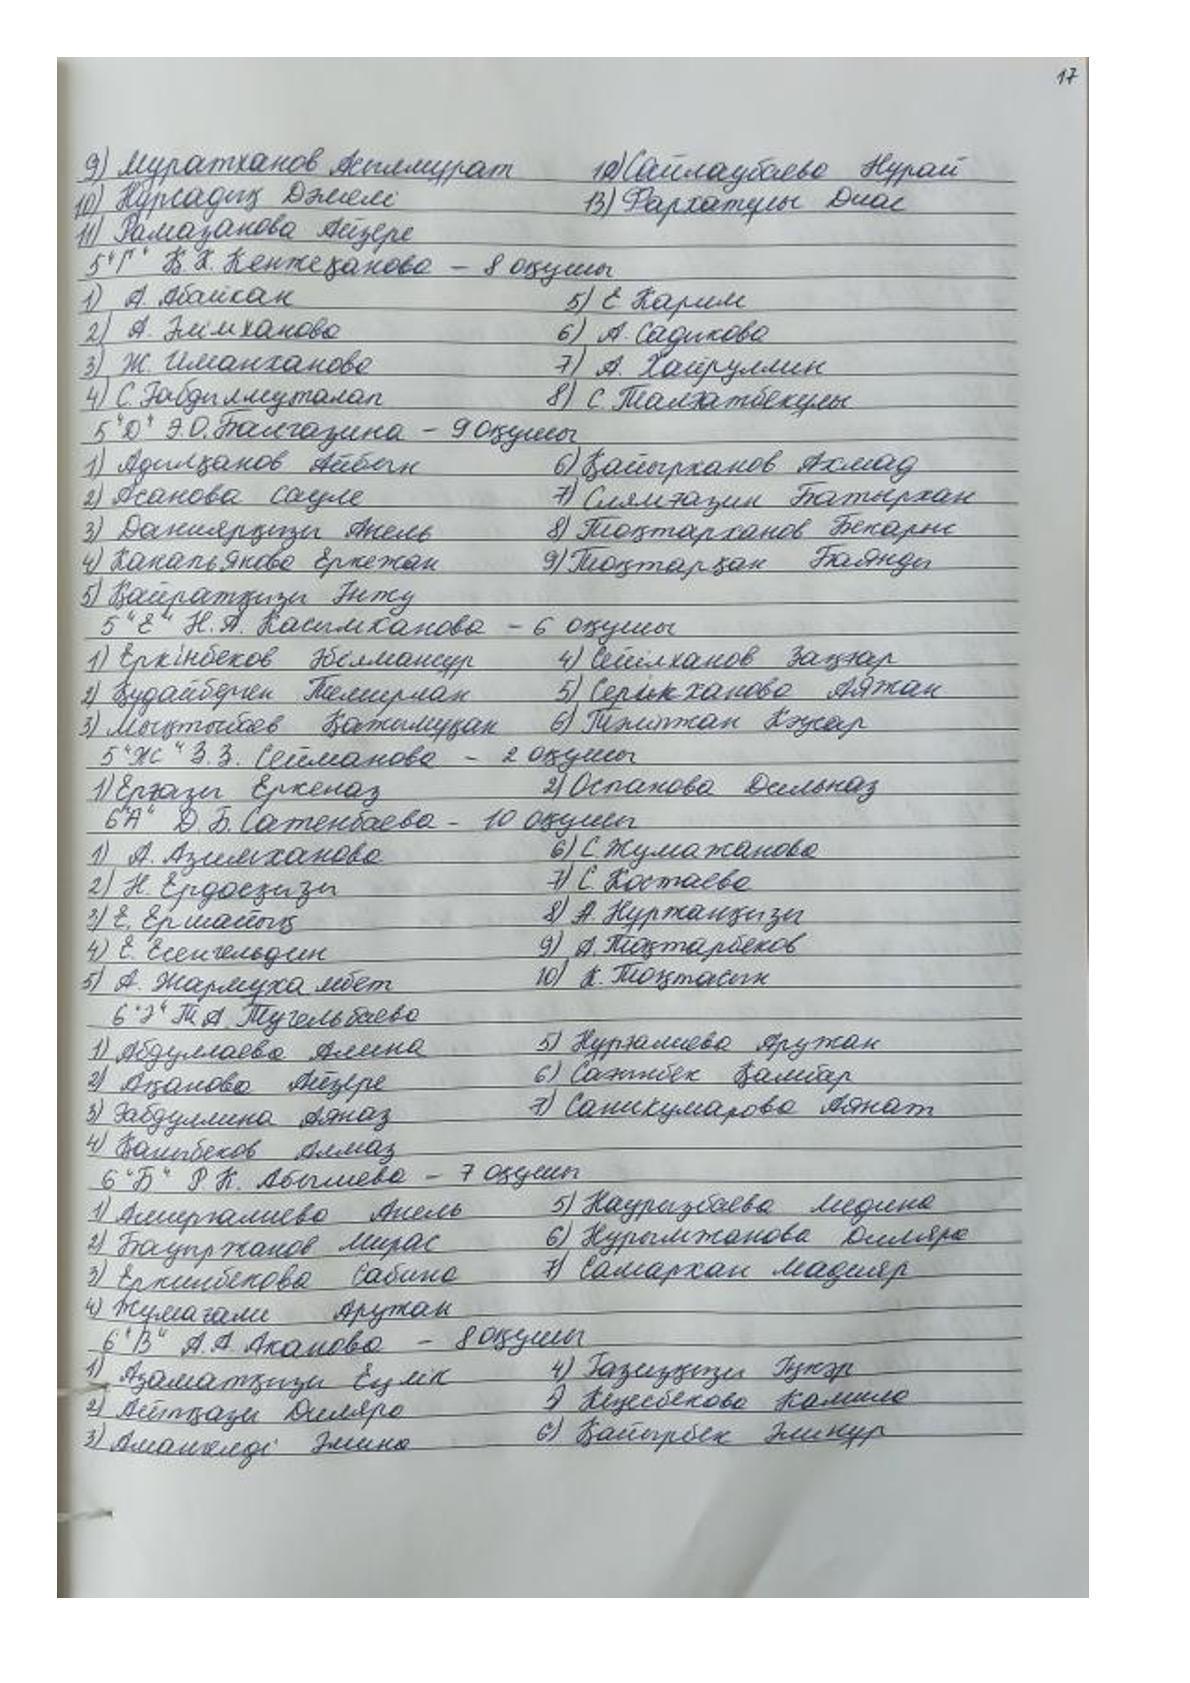 17
9) Муратханов Асылмурат 12) Сайлаубаева Нурай
10) Нұрсадық Даниелі 13) Фархатұлы Диас
11) Рамазанова Айзере
5 "Г" К.К. Кенжеқанова – 8 оқушы
1) А. Абайхан 5) Е. Карим
2) А. Әлімханова 6) А. Садикова
3) Ж. Иманханова 7) А. Хайруллин
4) С. Ғабдылмуталап 8) С. Талғатбекұлы
5 "Д" Э.О. Балгазина – 9 оқушы
1) Адилқанов Айбын 6) Қайырханов Ахмад
2) Асанова Сауле 7) Слямғазин Батырхан
3) Даниярқызы Анель 8) Тоқтарханов Бекарыс
4) Канапьянова Еркежан 9) Тоқтарқан Баянды
5) Қайратқызы Інжу
5 "Е" Н.А. Касымканова – 6 оқушы
1) Еркінбеков Әбілмансур 4) Сейілханов Заңғар
2) Құдайберген Темирлан 5) Серікханова Аяжан
3) Мықтыбаев Қажымұқан 6)
5 "Ж" З.З. Сейманова – 2 оқушы
1) Ерғазы Еркеназ 2) Оспанова Дильназ
6 "А" Д.Б. Сатенбаева – 10 оқушы
1) А. Азимханова 6) С. Жумажанова
2) Н. Ердосқызы 7) С. Костаева
3) Е. Ершайық 8) А. Нуржанқызы
4) Е. Есенгельдин 9) А. Тоқтарбеков
5) А. Жармухамбет 10) К. Тоқтасын
6 "Ә" Т.А. Тугельбаева
1) Абдуллаева Алина 5) Нурғалиева Аружан
2) Ақанова Айзере 6) Сағынбек Қамбар
3) Ғабдуллина Аяназ 7) Саникумарова Аянат
4) Қалибеков Алмаз
6 "Б" Р.К. Абылиева – 7 оқушы
1) Амирғалиева Анель 5) Наурызбаева Медина
2) Бауыржанов Мирас 6) Нурымжанова Диляра
3) Еркинбекова Сабина 7) Самархан Мадияр
4) Жумагали Аружан
6 "В" А.А. Аканова – 8 оқушы
1) Азаматқызы Еңлік 4) Ғазизқызы Іңкәр
2) Айтқазы Диляра 5) Кеңесбекова Камила
3) Аманкелді Әмина 6) Қайырбек Әлинұр